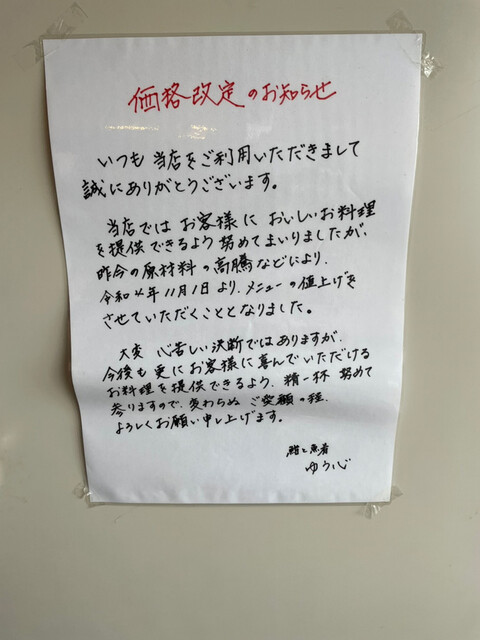 価格改定のお知らせ
いつも当店をご利用いただきまして
誠にありがとうございます。
当店ではお客様においしいお料理
を提供できるよう努めてまいりましたが、
昨今の原材料の高騰などにより、
令和4年11月1日より、メニューの値上げを
させていただくこととなりました。
大変心苦しい決断ではありますが、
今後も更にお客様に喜んでいただける
お料理を提供できるよう、精一杯努めて
参りますので、変わらぬご愛顧の程、
よろしくお願い申し上げます。
鮨と魚肴
ゆう心